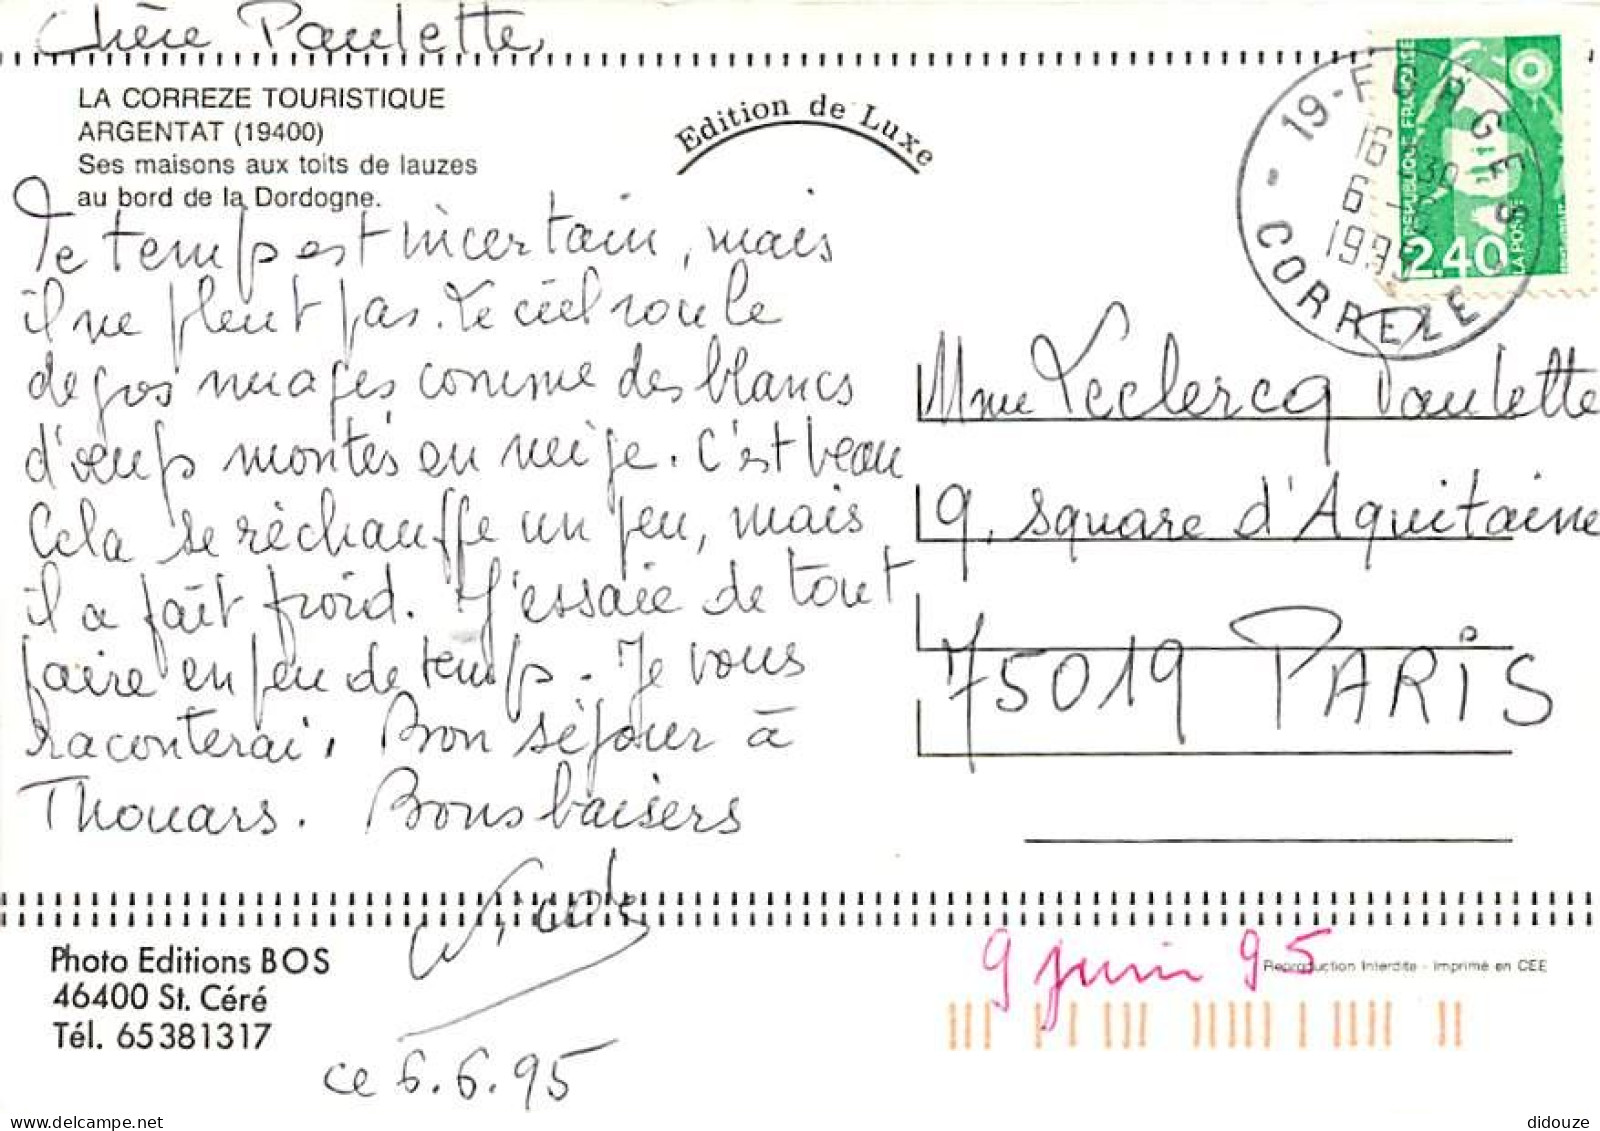 Chère Paulette,
LA CORREZE TOURISTIQUE
ARGENTAT (19400)
Ses maisons aux toits de lauzes
au bord de la Dordogne.
Edition de Luxe
19 - FORGES
16 30
6 -
1995
CORREZE
REPUBLIQUE FRANÇAISE
2.40
LA POSTE
Le temps est incertain, mais
il ne pleut pas. Le ciel roule
de gros nuages comme des blancs
d'œufs montés en neige. C'est beau
Cela se réchauffe un peu, mais
il a fait froid. J'essaie de tout
faire en peu de temps. Je vous
raconterai. Bon séjour à
Thouars. Bons baisers
Nicole
ce 6.6.95
Mme Leclercq Paulette
9, square d'Aquitaine
75019 PARIS
Photo Editions BOS
46400 St. Céré
Tél. 65381317
9 juin 95
Reproduction Interdite - Imprimé en CEE
didouze